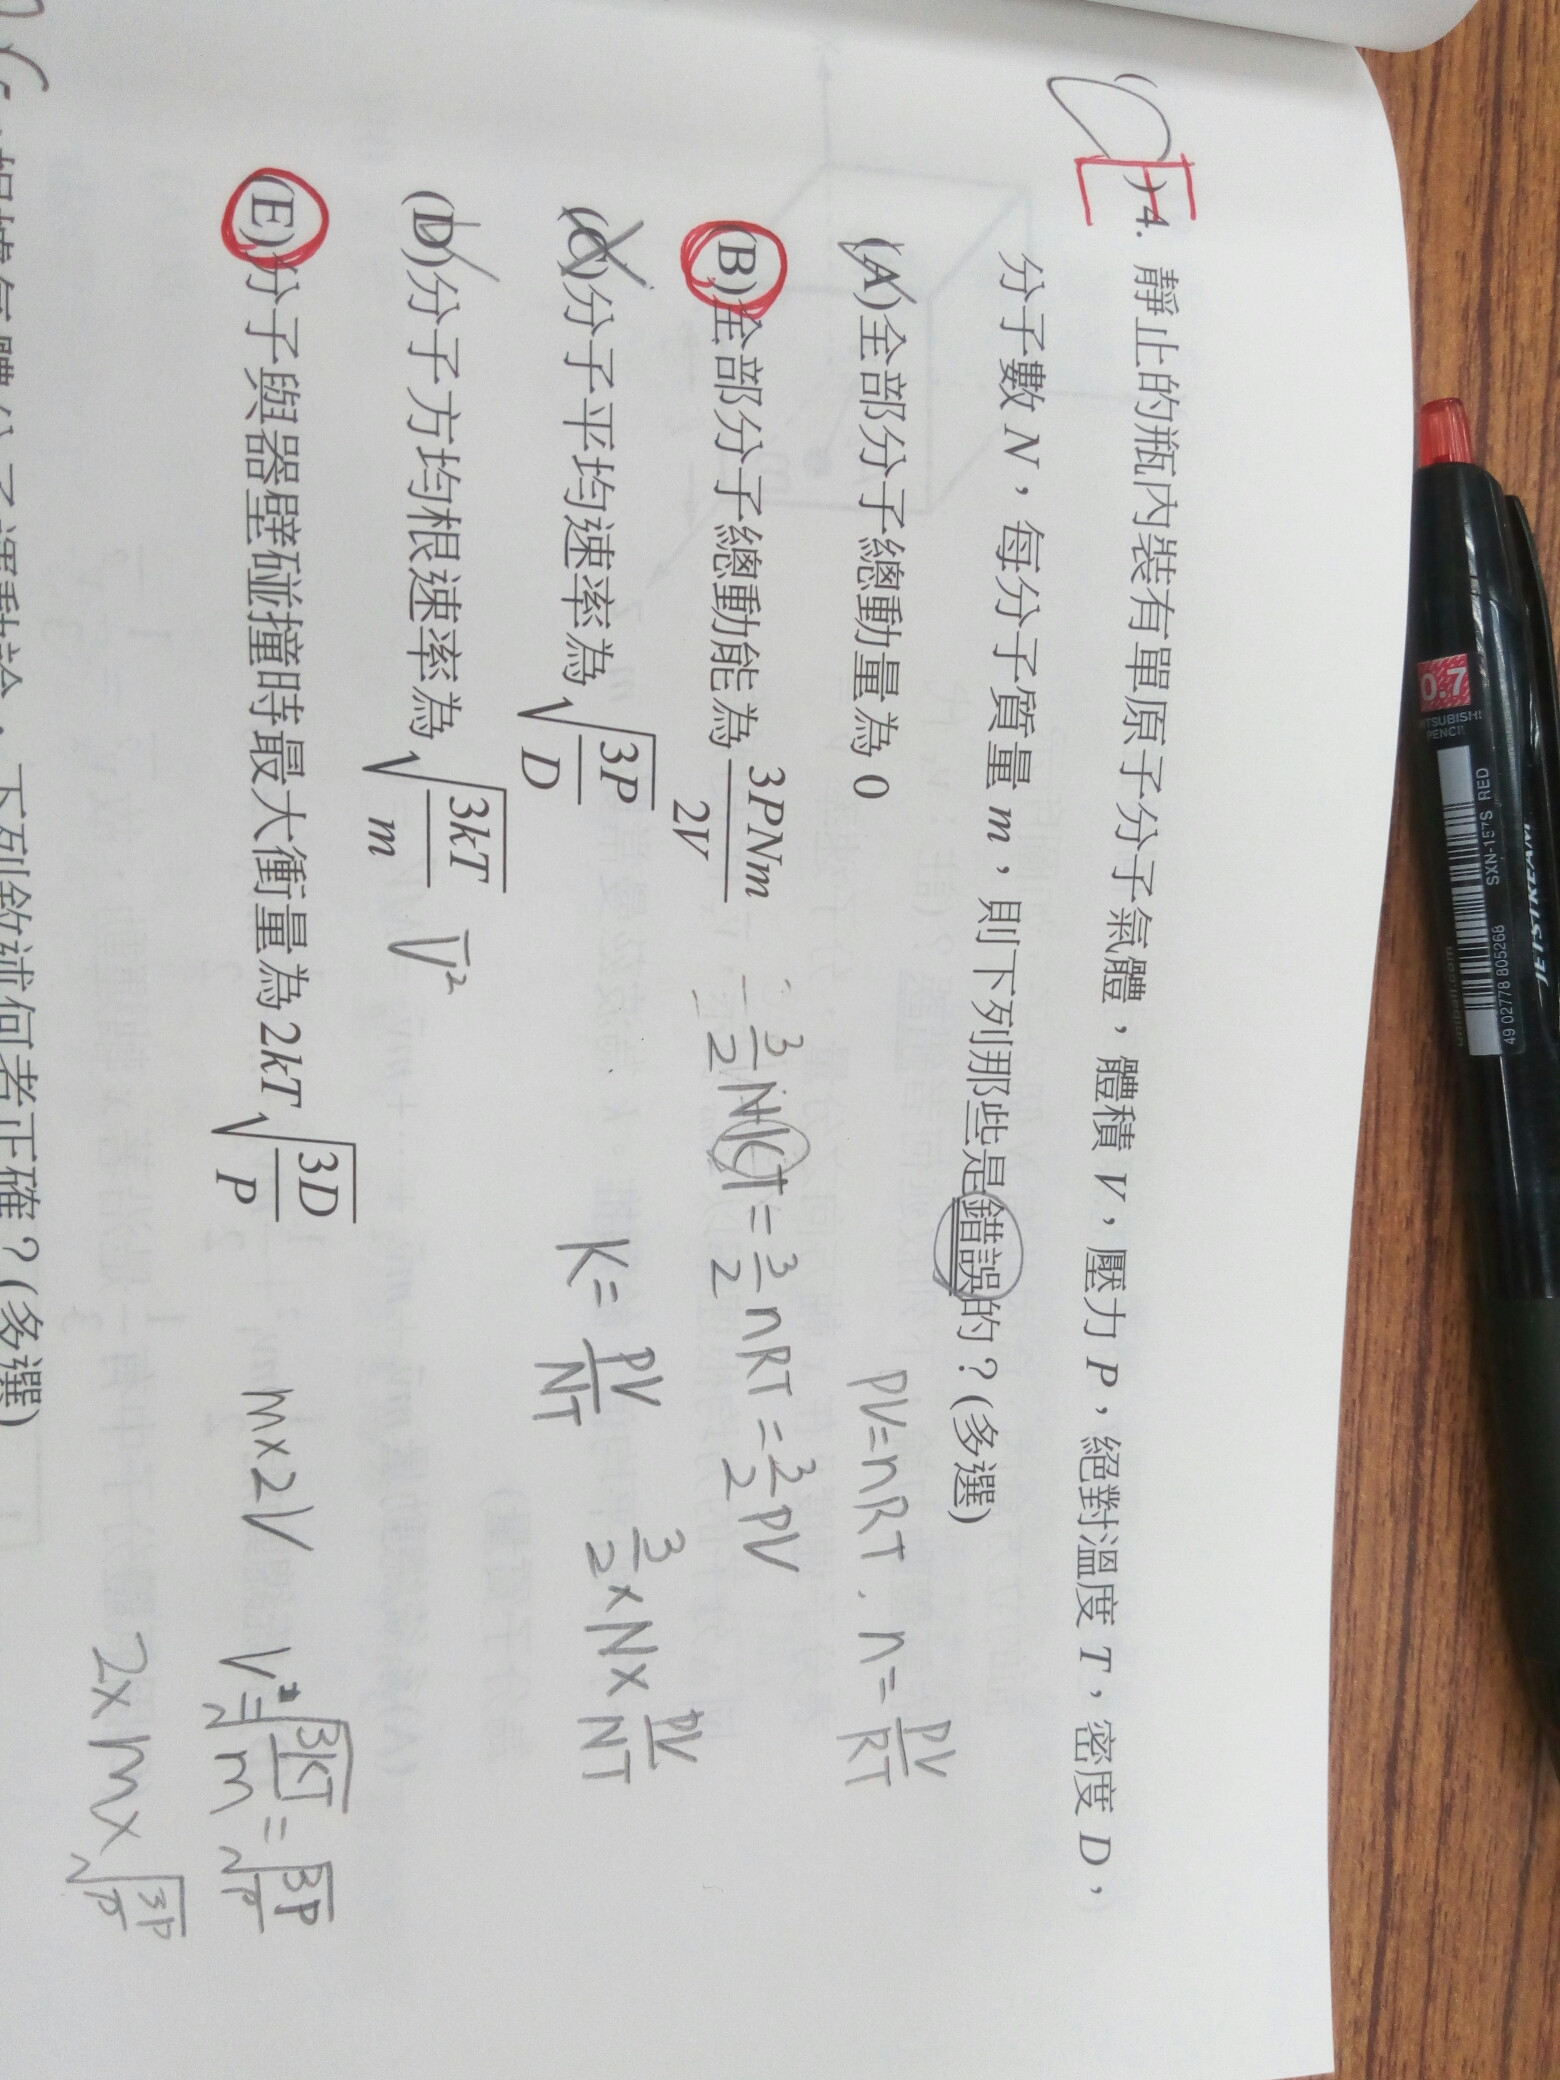 (C)4. 靜止的瓶內裝有單原子分子氣體，體積 V，壓力 P，絕對溫度 T，密度 D，
分子數 N，每分子質量 m，則下列那些是錯誤的？(多選)
(A)全部分子總動量為 0
PV=nRT . n=PV/RT
(B)全部分子總動能為 3PNm/2V
3/2 NKT = 3/2 nRT = 3/2 PV
(C)分子平均速率為 √(3P/D)
K = PV/NT
3/2 × N × PV/NT
(D)分子方均根速率為 √(3kT/m)
V²
(E)分子與器壁碰撞時最大衝量為 2kT√(3D/P)
m×2V
V=√(3KT/m) = √(3P/D)
2×m×√(3P/D)
下列敘述何者正確？(多選)
0.7
MITSUBISHI
PENCIL
SXN-157S RED
49 02778 805268
uniball.com
JETSTREAM